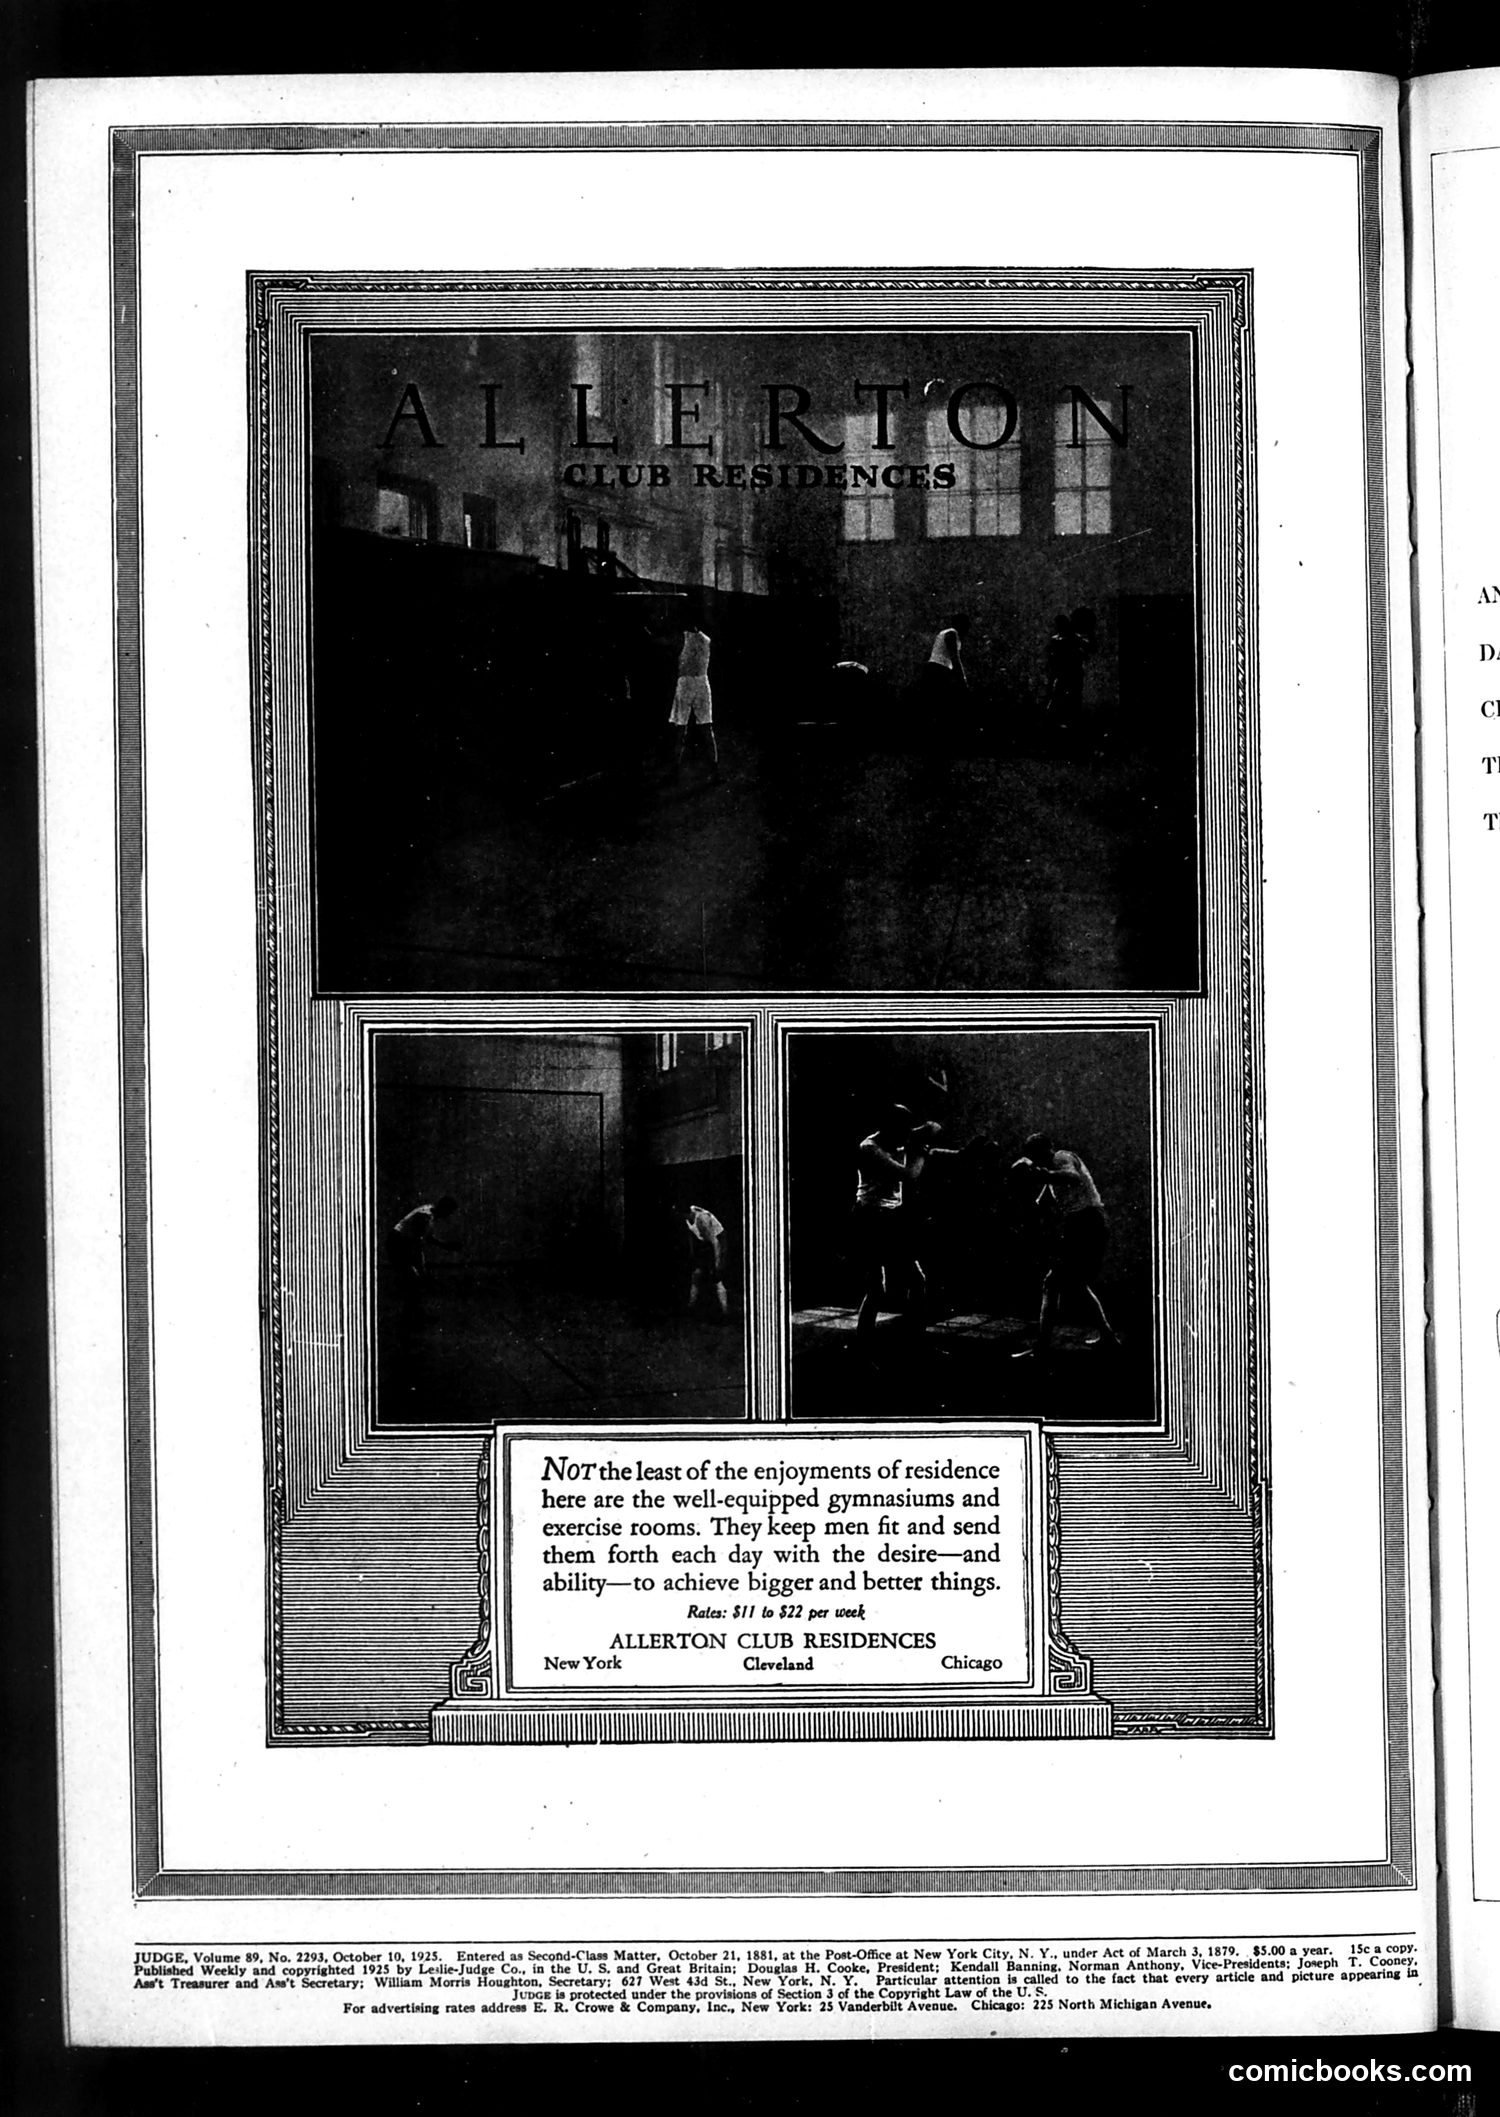 ALLERTON
CLUB RESIDENCES
NOT the least of the enjoyments of residence
here are the well-equipped gymnasiums and
exercise rooms. They keep men fit and send
them forth each day with the desire—and
ability—to achieve bigger and better things.
Rates: $11 to $22 per week
ALLERTON CLUB RESIDENCES
New York Cleveland Chicago
JUDGE, Volume 89, No. 2293, October 10, 1925. Entered as Second-Class Matter, October 21, 1881, at the Post-Office at New York City, N. Y., under Act of March 3, 1879. $5.00 a year. 15c a copy.
Published Weekly and copyrighted 1925 by Leslie-Judge Co., in the U. S. and Great Britain; Douglas H. Cooke, President; Kendall Banning, Norman Anthony, Vice-Presidents; Joseph T. Cooney,
Ass't Treasurer and Ass't Secretary; William Morris Houghton, Secretary; 627 West 43d St., New York, N. Y. Particular attention is called to the fact that every article and picture appearing in
JUDGE is protected under the provisions of Section 3 of the Copyright Law of the U. S.
For advertising rates address E. R. Crowe & Company, Inc., New York: 25 Vanderbilt Avenue. Chicago: 225 North Michigan Avenue.
comicbooks.com